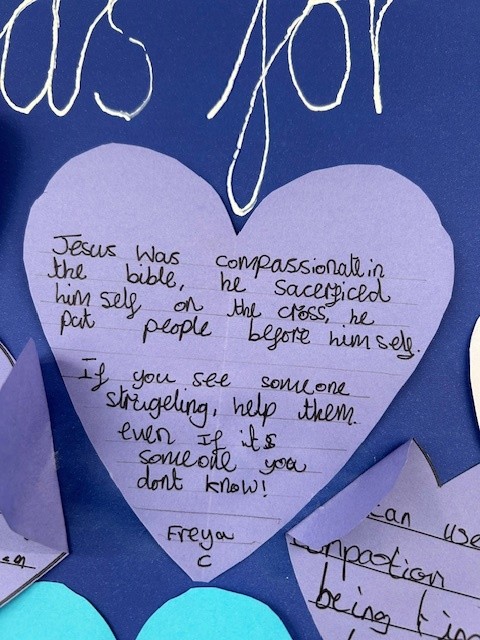 as for
Jesus was compassionate in
the bible, he sacerficed
him self on the cross, he
put people before him self.
If you see someone
strugeling, help them.
even If its
someone you
dont know!
Freya
C
can use
compaction
being kind